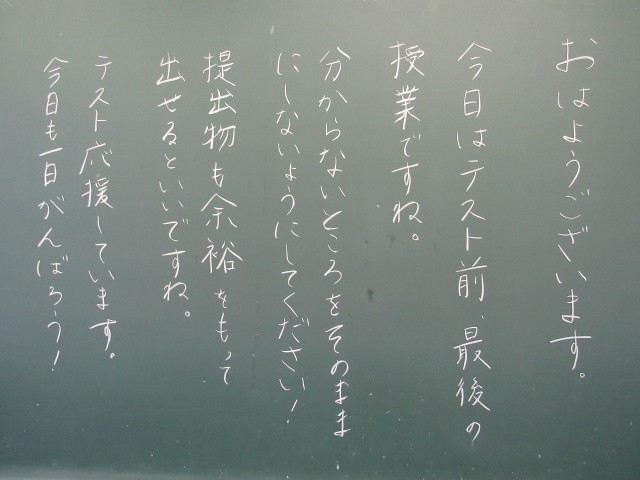 おはようございます。
今日はテスト前、最後の
授業ですね。
分からないところをそのまま
にしないようにしてください!
提出物も余裕をもって
出せるといいですね。
テスト応援しています。
今日も一日がんばろう!